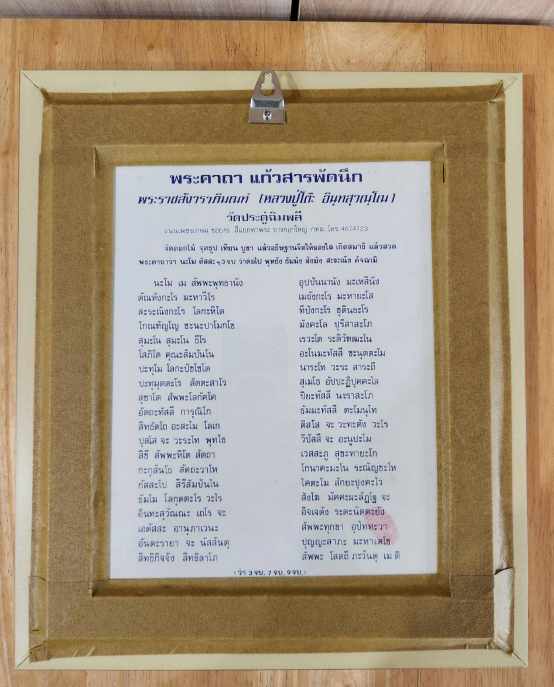 พระคาถา แก้วสารพัดนึก
พระราชสังวราภิมณฑ์ (หลวงปู่โต๊ะ อินฺทสุวณฺโณ)
วัดประดู่ฉิมพลี
ถนนเพชรเกษม ซอย 15 สี่แยกท่าพระ บางกอกใหญ่ กทม. โทร. 4674723
จัดดอกไม้ จุดธูป เทียน บูชา แล้วอธิษฐานจิตให้ผ่องใส เกิดสมาธิ แล้วสวด
พระคาถาว่า นะโม ตัสสะ ๓ จบ ว่าต่อไป พุทธัง ธัมมัง สังฆัง สะระณัง คัจฉามิ
นะโม เม สัพพะพุทธานัง อุปปันนานัง มะเหสินัง
ตัณหังกะโร มะหาวีโร เมธังกะโร มะหายะโส
สะระณังกะโร โลกะหิโต ทีปังกะโร ชุตินธะโร
โกณฑัญโญ ชะนะปาโมกโข มังคะโล ปุริสาสะโภ
สุมะโน สุมะโน ธีโร เรวะโต ระติวัฑฒะโน
โสภิโต คุณะสัมปันโน อะโนมะทัสสี ชะนุตตะโม
ปะทุโม โลกะปัชโชโต นาระโท วะระ สาระถี
ปะทุมุตตะโร สัตตะสาโร สุเมโธ อัปปะฏิปุคคะโล
สุชาโต สัพพะโลกัคโค ปิยะทัสสี นะราสะโภ
อัตถะทัสสี การุณิโก ธัมมะทัสสี ตะโมนุโท
สิทธัตโถ อะสะโม โลเก ติสโส จะ วะทะตัง วะโร
ปุสโส จะ วะระโท พุทโธ วิปัสสี จะ อะนูปะโม
สิขี สัพพะหิโต สัตถา เวสสะภู สุขะทายะโก
กะกุสันโธ สัตถะวาโห โกนาคะมะโน ระณัญชะโห
กัสสะโป สิริสัมปันโน โคตะโม สักยะปุงคะโว
ธัมโม โลกุตตะโร วะโร สังโฆ มัคคะผะลัฏโฐ จะ
อินทะสุวัณณะ เถโร จะ อิจเจตัง ระตะนัตตะยัง
เอตัสสะ อานุภาเวนะ สัพพะทุกขา อุปัททะวา
อันตะรายา จะ นัสสันตุ ปุญญะลาภะ มะหาเตโช
สิทธิกิจจัง สิทธิลาโภ สัพพะ โสตถี ภะวันตุ เม ติ
(ว่า 3 จบ, 7 จบ, 9 จบ.)